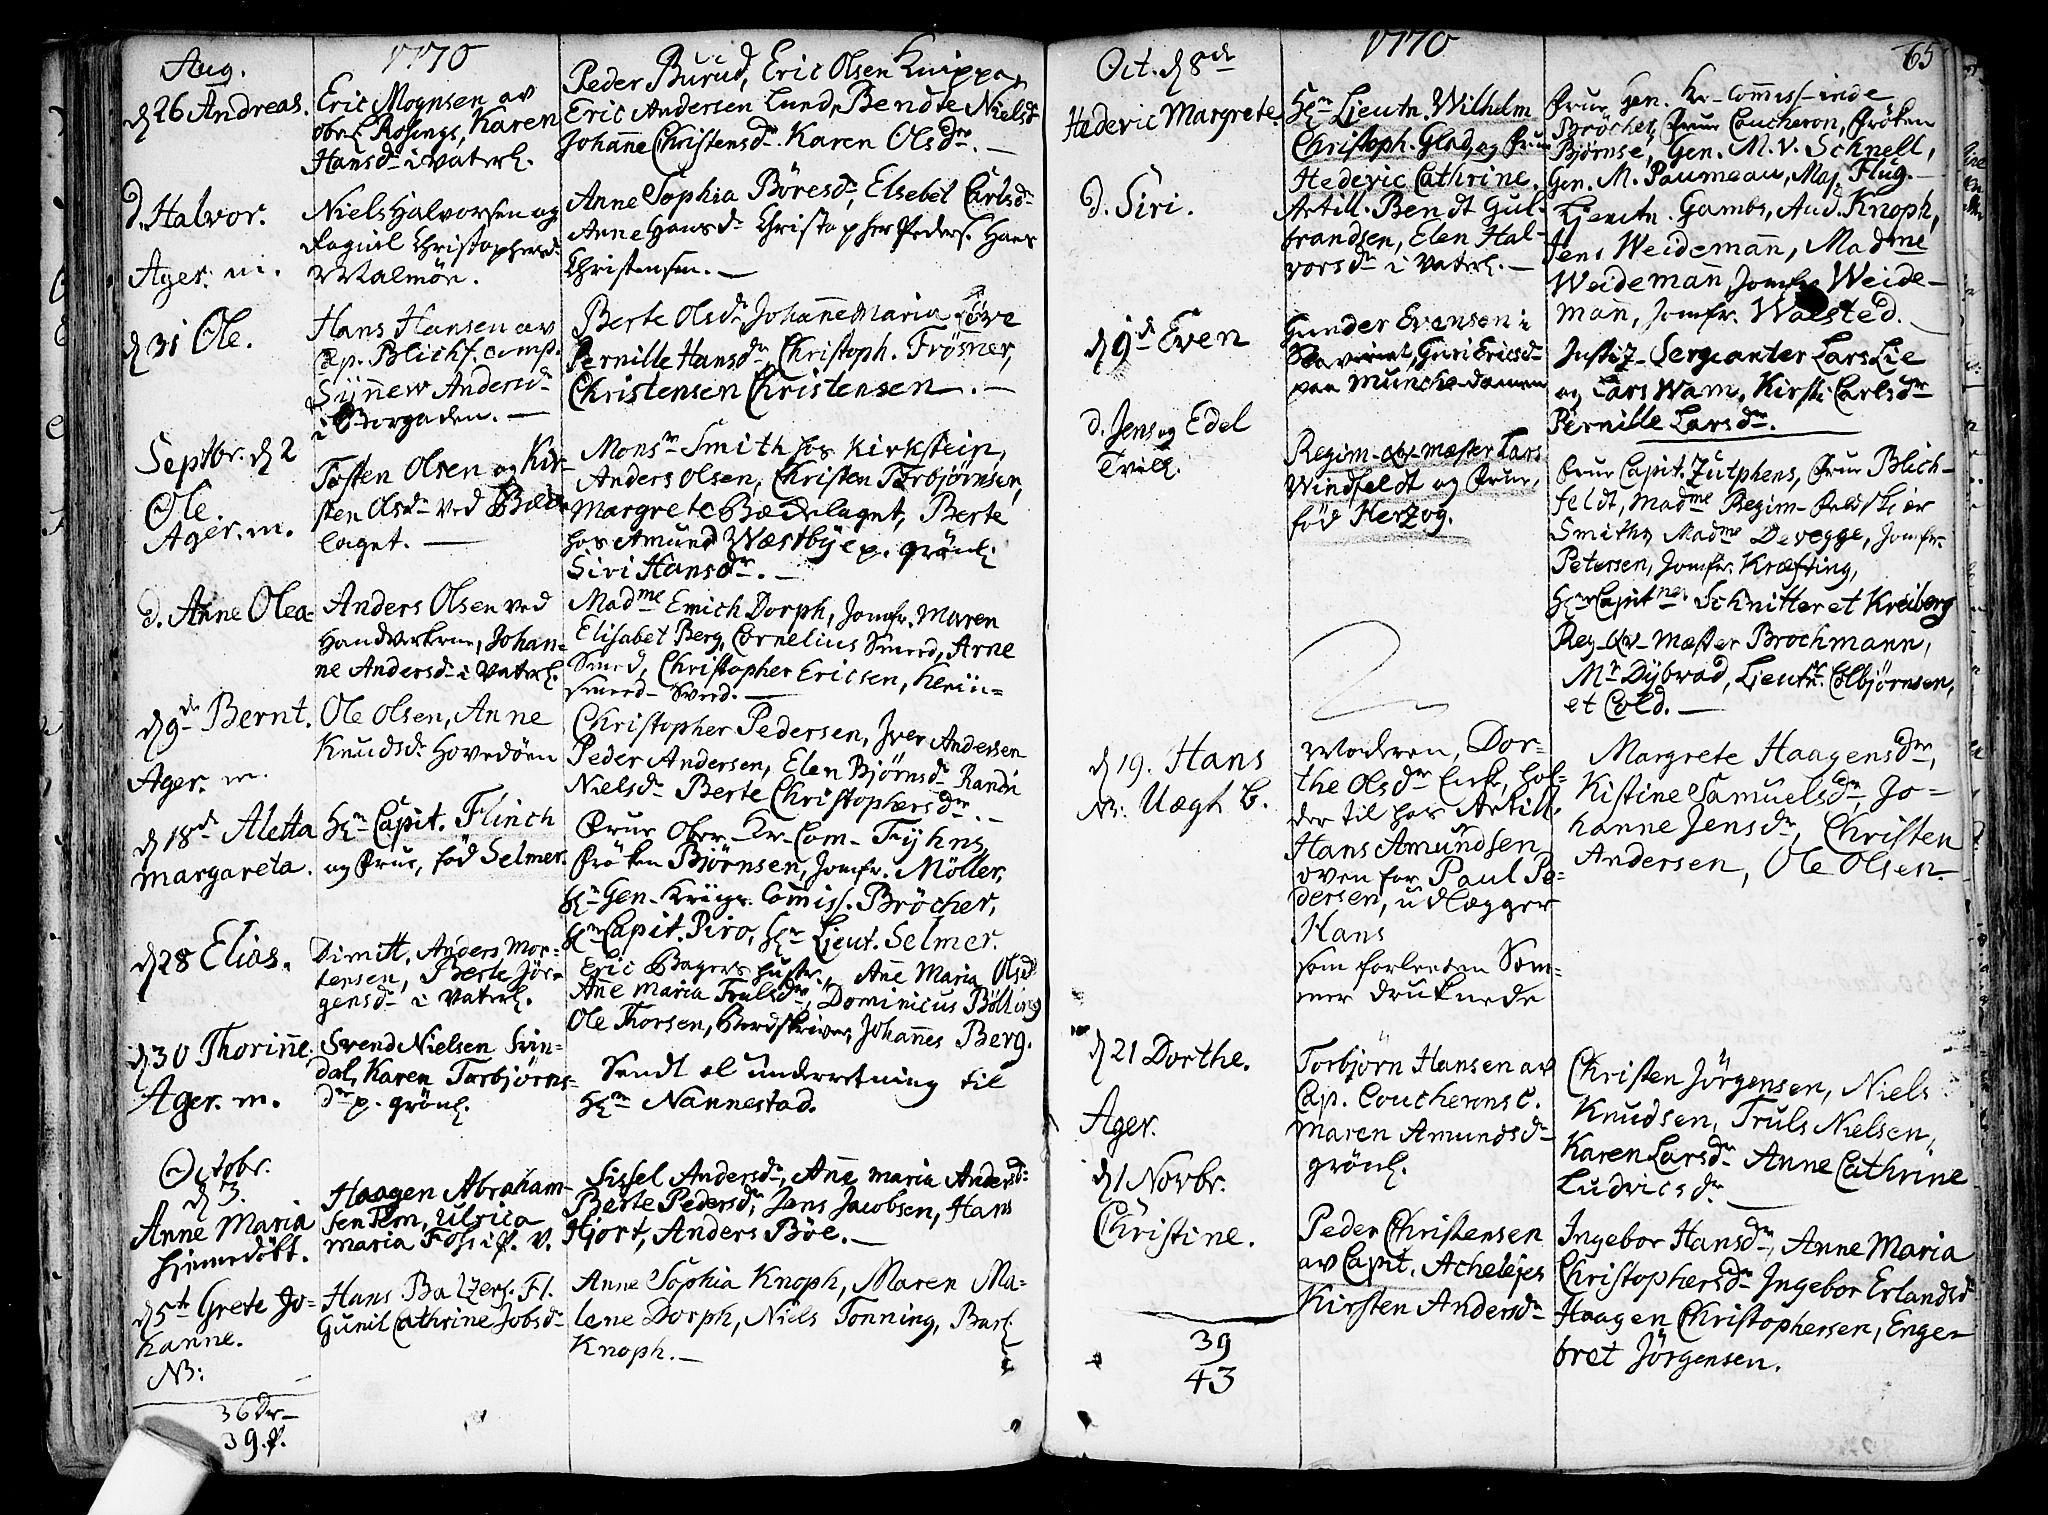 Aug. 1770
d 26 Andreas.
Eric Mognsen av
obr.l. Rosings, Karen
Hansdr i Vaterl.
Peder Burud, Eric Olsen Knippe,
Eric Andersen Lund, Bendte Nielsdr
Johanne Christensdr. Karen Olsdr. —
d. Halvor.
Ager. m.
Niels Halvorsen og
Raguil Christophersdr
Malmöe.
Anne Sophia Böresdr, Elsebet Carlsdr
Anne Hansdr Christopher Peders. Hans
Christensen. —
d 31 Ole.
Hans Hansen av
Cap. Blichf. comp.
Synnew Andersdr
i Borgaden. —
Berte Olsdr, Johanne Maria
Pernille Hansdr, Christoph. Frösner,
Christensen Christensen. —
Septbr. d 2
Ole.
Ager. m.
Tosten Olsen og Kir-
sten Olsdr ved Bæde
laget. —
Monsr Smith hos Kirkstein,
Anders Olsen, Christen Torbjørnsen,
Margrete Bædelaget, Berte
hos Amund Wæstbye p. Grönl.
Siri Hansdr. —
d. Anne Olea
Anders Olsen ved
Handverkene, Johan-
ne Andersdr i Vaterl.
Madme Emich Dorph, Jomfr. Maren
Elisabet Berg, Cornelius Smed, Arne
Smed, Christopher Ericsen,
Smed- Sved. —
d 9de Bernt.
Ager. m.
Ole Olsen, Anne
Knudsdr Hovedöen
Christopher Pedersen, Iver Andersen
Peder Andersen, Elen Bjørnsdr Randi
Nielsdr Berte Christophersdr. —
d 18de Aletta
Margareta.
Hr Capit. Flinch
og Frue, föd Selmer.
Frue Ober-Kr-Com- Fryhns,
Frøken Bjørnsen, Jomfr. Möller,
Hr Gen. Kriigs. Comiss. Bröcher,
Hr Capit. Piro, Hr Lieut. Selmer.
d 28 Elias.
Dimitt. Anders Mor-
tensen, Berte Jör-
gensdr i Vaterl.
Eric Bagers Hustr., Ane Maria Olsdr
Ane Maria Trulsdr, Dominicus Bölling
Ole Thorsen, Bordskriver, Johannes Berg.
d 30 Thorinne.
Ager. m.
Svend Nielsen Svin-
dal, Karen Torbjørns-
dr p. Grönl.
Sendt al underretning til
Hr Nannestad.
Octobr.
d 3.
Anne Maria
hiemedöbt.
Haagen Abraham-
sen Fem, Ulrica
Maria Foss i P. V.
Sissel Andersdr, Ane Maria Andersdr:
Berte Pedersdr, Jens Jacobsen, Hans
Hjort, Anders Böe. —
d 5te Grete Jo-
hanne.
NB:
Hans Balzers. Fl.
Gunil Cathrine Jobsdr
Anne Sophia Knoph, Maren Ma-
lene Dorph, Niels Tonning, Barl.
Knoph. —
36 Dr—
39. P.
1770 65
Oct. d 8de
Hedevic Margrete.
Hr Lieutn. Wilhelm
Christoph. Glad, og Frue
Hedevic Cathrine.
Frue Gen. Kr-Commiss-inde
Bröcher, Frue Coucheron, Fröken
Bjørnse, Gen. M. v. Schnell,
Gen. M. Paumeau, Maj. Flug.
Ljeutn. Gambs, Aud. Knoph,
Jens Weidemann, Madme
Weidemann, Jomfr. Weide-
mann, Jomfr. Walsted. —
d. Siri.
Artill. Bendt Gul-
brandsen, Elen Hal-
vorsdr i Vaterl. —
d 9de Even
Gunder Evensen i
Guri Ericsdr
paa Munchedamen
Justiz- Sergianter Lars Lie
og Lars Wam, Kirsti Carlsdr
Pernille Larsdr.
d. Jens og Edel
Tvill.
Regim-qv-mester Lars
Windfeldt og Frue,
föd Herzog.
Frue Capit. Zülphens, Frue Blich-
feldt, Madme Regim- Feldskiær
Smiths, Madme Devegge, Jomfr.
Petersen, Jomfr. Kræfting,
Hr Capitne: Schnitler et Kreiberg
Reg-qv-mæster Brochmann,
Mr Dybvad, Ljeutn. Colbjørnsen,
et Cold. —
d 19. Hans
NB: Uægte b.
Moderen, Dor-
the Olsdr Eeck, hol-
der til hos Artill.
Hans Amundsen
oven for Paul Pe-
dersen, udlægger
Hans
som forleeden Som-
mer druknede
Margrete Haagensdr,
Kistine Samuelsdr, Jo-
hanne Jensdr, Christen
Andersen, Ole Olsen.
d 21 Dorthe.
Ager.
Torbjörn Hansen av
Cap. Coucherons C.
Maren Amundsdr
Grönl.
Christen Jörgensen, Niels
Knudsen, Truls Nielsen,
Karen Larsdr Anne Cathrine
Ludvicsdr —
d 1 Novbr.
Christine.
Peder Christensen
av Capit. Acheleyes
Kirsten Andersdr
Ingebor Hansdr, Anne Maria
Christophersdr Ingebor Erlandsdr
Haagen Christophersen, Enge-
bret Jörgensen.
39
43